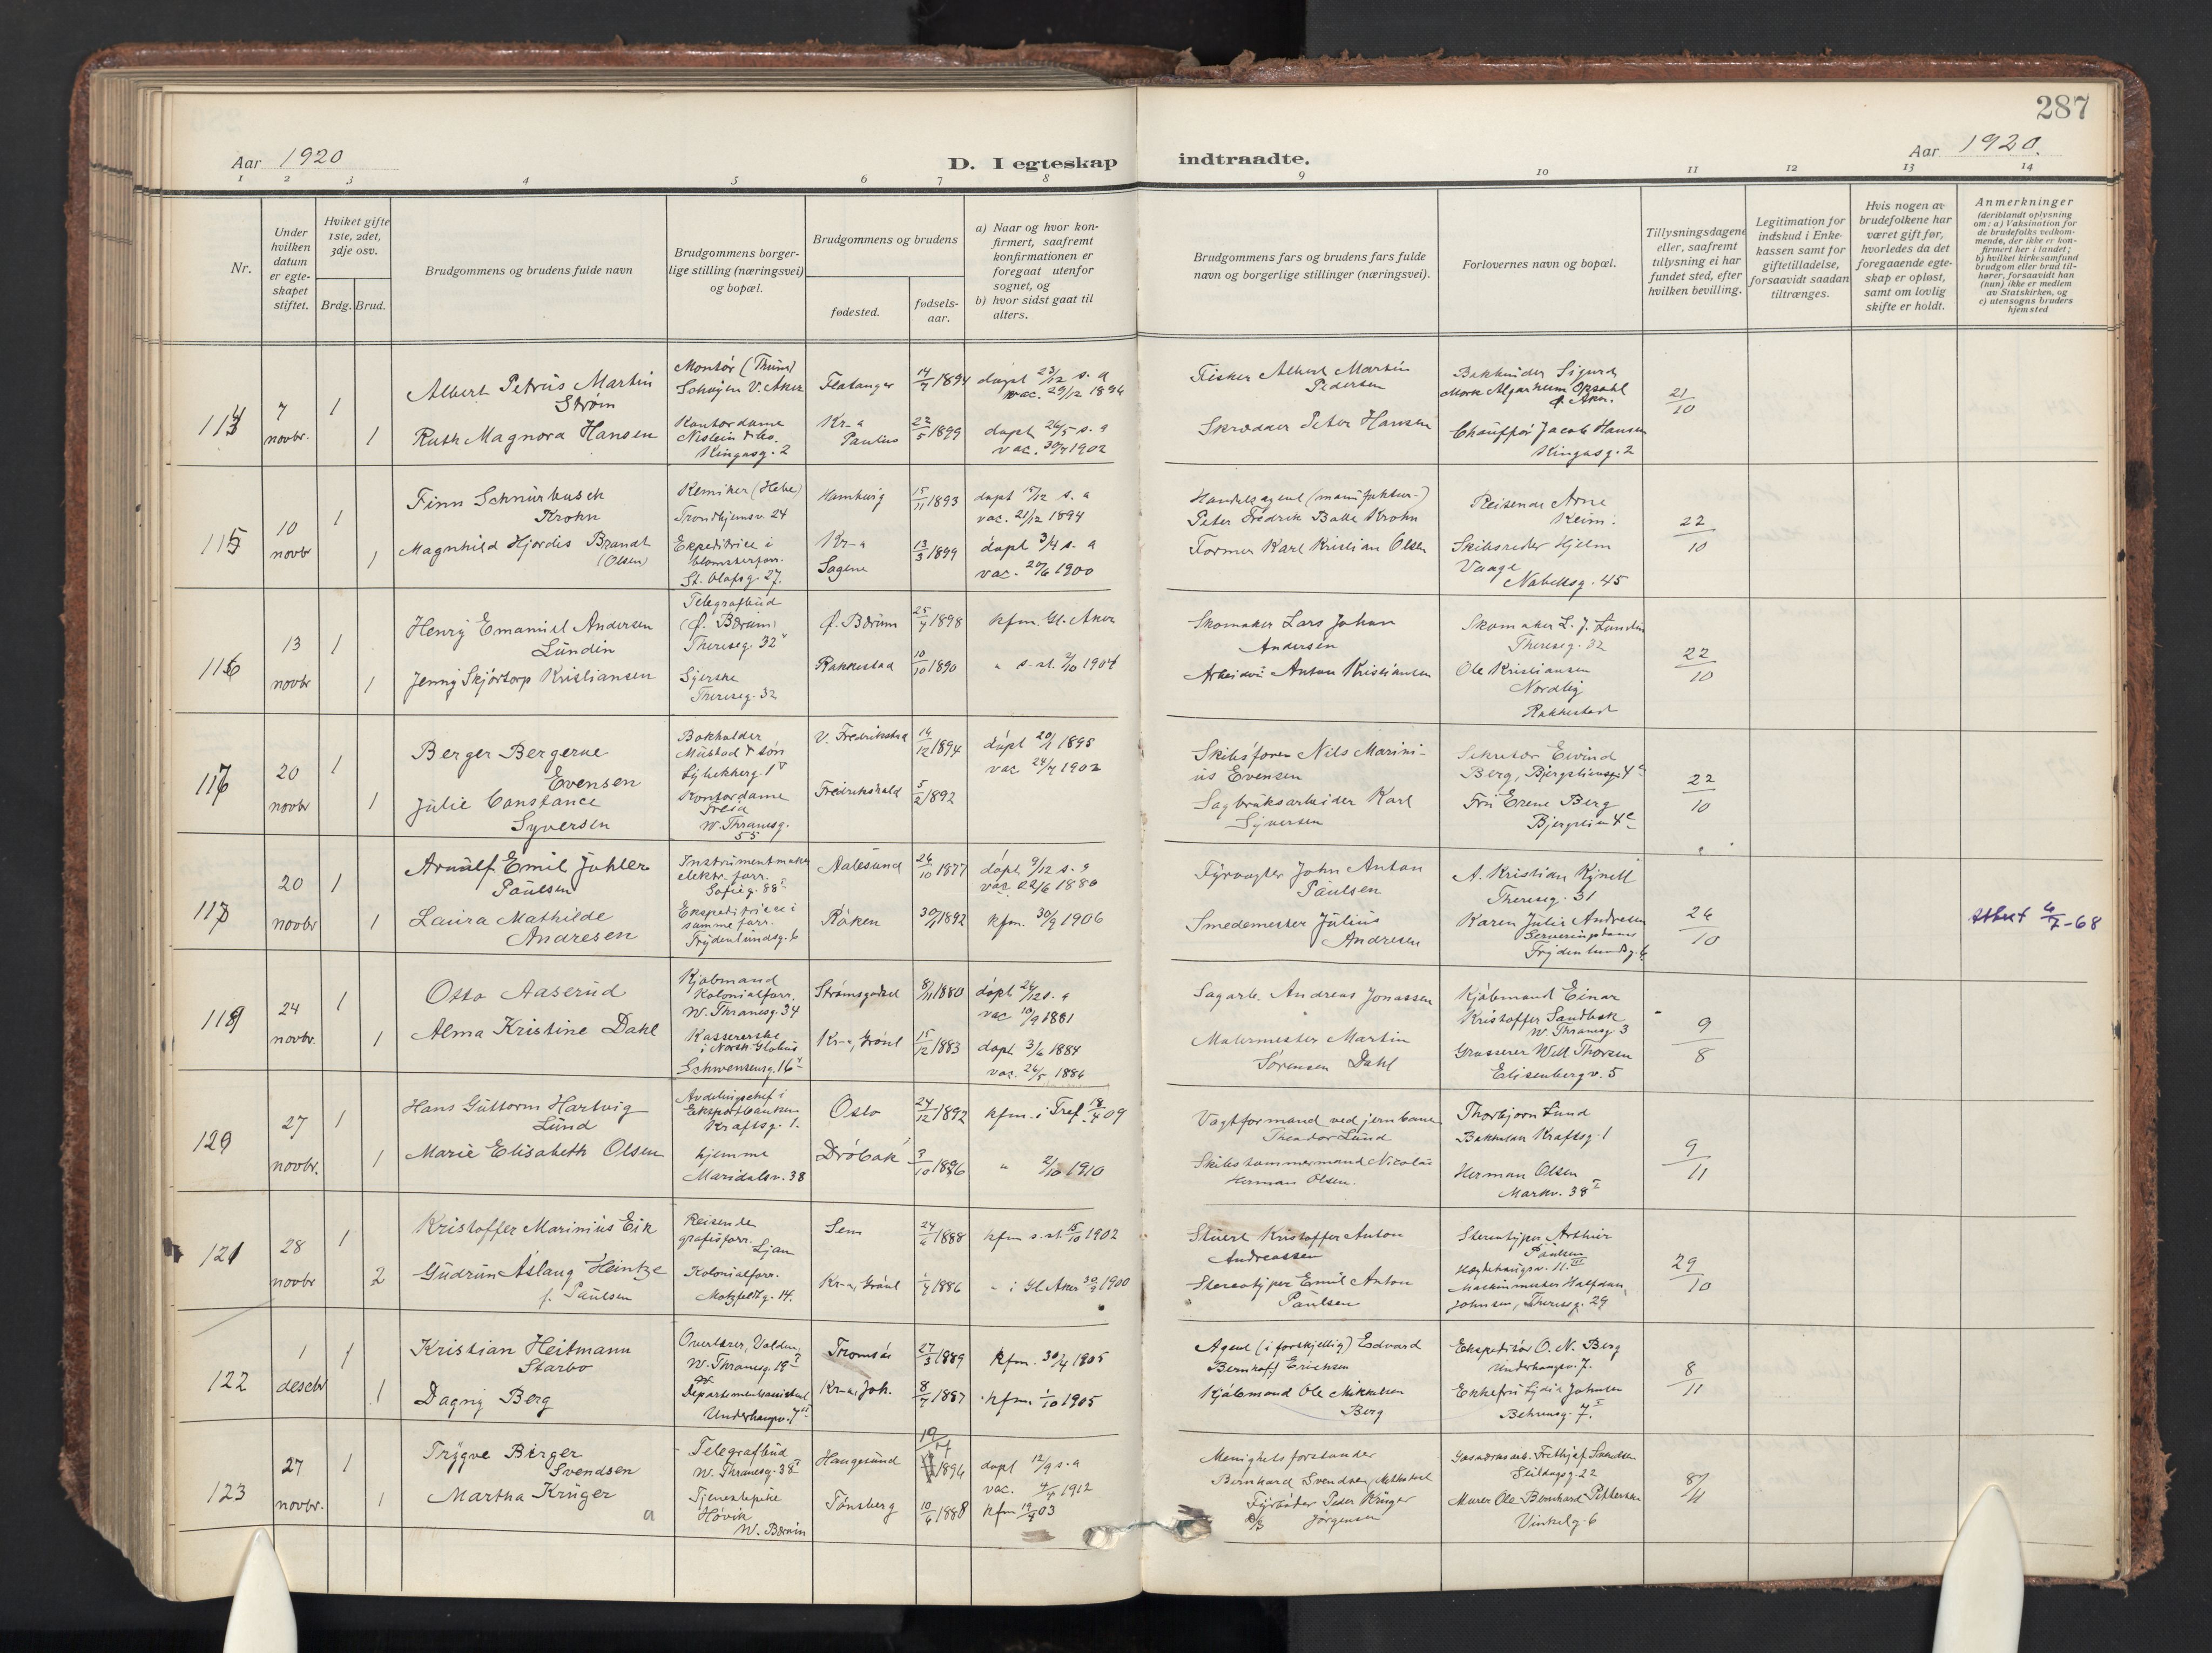 287
Aar 1920
D. I egteskap indtraadte.
Aar 1920.
1 2 3 4 5 6 7 8 9 10 11 12 13 14
Nr.
Under hvilken datum er egteskapet stiftet.
Hvilket gifte 1ste, 2det, 3dje osv.
Brdg. Brud.
Brudgommens og brudens fulde navn
Brudgommens borgerlige stilling (næringsvei) og bopæl.
Brudgommens og brudens
fødested.
fødselsaar.
a) Naar og hvor konfirmert, saafremt konfirmationen er foregaat utenfor sognet, og
b) hvor sidst gaat til alters.
Brudgommens fars og brudens fars fulde navn og borgerlige stillinger (næringsvei).
Forlovernes navn og bopæl.
Tillysningsdagene eller, saafremt tillysning ei har fundet sted, efter hvilken bevilling.
Legitimation for indskud i Enkekassen samt for giftetilladelse, forsaavidt saadan tiltrænges.
Hvis nogen av brudefolkene har været gift før, hvorledes da det foregaaende egteskap er opløst, samt om lovlig skifte er holdt.
Anmerkninger
(deriblandt oplysning om: a) Vaksination for de brudefolks vedkommende, der ikke er konfirmert her i landet;
b) hvilket kirkesamfund brudgom eller brud tilhører, forsaavidt han (hun) ikke er medlem av Statskirken, og
c) utensogns bruders hjemsted
114
7 novbr.
1
Albert Petrus Martin Strøm
Montør (Thune)
Schøyen V. Aker
Flatanger
14/7 1894
døpt 23/12 s. a
vac. 29/12 1894
Fisker Albert Martin Pedersen
Sigurd
21/10
1
Ruth Magnora Hansen
Kontordame
Kingosg. 2
Kr-a Paulus
22/5 1899
døpt 26/5 s. a
vac. 30/7 1902
Skrædder Peter Hansen
Chauffør Jacob Hansen
Kingosg. 2
115
10 novbr
1
Finn Schnürbusch Krohn
Kemiker (Hebe)
Trondhjemsv. 24
Hamburg
15/11 1893
døpt 15/12 s. a
vac. 21/12 1894
Handelsagent (manufaktur-)
Peter Fredrik Balle Krohn
Reisende Arne Keim.
22/10
1
Magnhild Hjørdis Brandt (Olsen)
Ekspeditrice i blomsterforr.
St. Olafsg. 27.
Kr-a Sagene
13/3 1899
døpt 3/4 s. a
vac. 20/6 1900
Former Karl Kristian Olsen
Skibsreder Hjelm Vaage
Nobelsg. 45
116
13 novbr
1
Henry Emanuel Andersen Lundin
Telegrafbud
(Ø. Bærum)
Thereseg. 32
Ø. Bærum
25/7 1898
kfm. Gl. Aker
Skomaker Lars Johan Andersen
Skomaker L. J. Lundin
Thereseg. 32
22/10
1
Jenny Skjørtorp Kristiansen
Syerske
Thereseg. 32
Rakkestad
10/10 1890
" s. st. 2/10 1904
Arbeider Anton Kristiansen
Ole Kristiansen
Nordlig
Rakkestad
117
20 novbr
1
Berger Bergerne Evensen
Bokholder
Mustad & søn
V. Fredrikstad
14/12 1894
døpt 20/1 1895
vac 24/7 1902
Skibsfører Nils Marinius Evensen
Sekretær Eivind Berg, Bjergsliensg. 4
22/10
1
Julie Constance Syversen
Kontordame
Freia
W. Thranesg. 55
Fredrikshald
5/2 1892
Sagbruksarbeider Karl Syversen
Fru Erene Berg
118
20 novbr
1
Arnulf Emil Johler Paulsen
Instrumentmaker
elektr. forr.
Sofieg. 88
Aalesund
26/10 1877
døpt 9/12 s. a
vac 22/6 1880
Fyrvogter John Anton Paulsen
A. Kristian Kynell
Thereseg. 31
26/10
1
Laura Mathilde Andresen
Ekspeditrice i samme forr.
Frydenlundsg. 6
Røken
30/1 1892
kfm. 30/9 1906
Smedemester Julius Andresen
Karen Julie Andresen
Serveringsdame
Frydenlundsg. 6
Attest 4/7-68
119
24 novbr.
1
Otto Aaserud
Kjøbmand
Kolonialforr.
W. Thranesg. 34
Strømsgodset
8/11 1880
døpt 26/12 s. a
vac 10/9 1881
Sagarb. Andreas Jonassen
Kjøbmand Einar Kristoffer Sandbæk
W. Thranesg 3
9/8
1
Alma Kristine Dahl
Kassererske
i Norsk Globus
Schwensensg. 16
Kr-a, Grønl
15/12 1883
døpt 3/6 1884
vac. 26/5 1886
Malermester Martin Sørensen Dahl
Grosserer Will Thorsen
Elisenbergv. 5
120
27 novbr.
1
Hans Guttorm Hartvig Lund
Avdelingschef i
Eksportbanken
Kraftsg. 1.
Oslo
24/12 1892
kfm. i Tref. 18/4 09
Vagtformand ved jernbane
Theodor Lund
Thorbjørn Lund
Kraftsg. 1
9/11
1
Marie Elisabeth Olsen
hjemme
Maridalsv. 38
Drøbak
3/10 1896
" 2/10 1910
Skibstømmermand Nicolai Herman Olsen.
Herman Olsen
Markv. 38
121
28 novbr
1
Kristoffer Marinius Eik
Reisende
grafisforr. Ljan
Sem
24/6 1888
kfm s. st. 15/10 1902
Stuert Kristoffer Anton Andreassen
Stereotypør Arthur Paulsen
29/10
2
Gudrun Aslaug Heintze
f. Paulsen
Kolonialforr.
Motzfeldtg. 14.
Kr-a, Grønl
1/7 1886
" i Gl. Aker 30/9 1900
Stereotypør Emil Anton Paulsen
Maskinmester Halfdan Johnsen, Thereseg. 29
122
1 desebr
1
Kristian Heitmann Starbo
Overlærer, Valden,
W. Thranesg. 19
Tromsø
27/3 1889
kfm. 30/4 1905
Agent (i forskjellig) Edvard Bernhoft Erichsen
Ekspeditør O. N. Berg
Underhaugsv. 7.
8/11
1
Dagny Berg
Departementsassistent
Underhaugsv. 7
Kr-a, Joh.
8/7 1887
kfm. 1/10 1905
Kjøbmand Ole Mikkelsen Berg
Enkefru Lydia Johnsen
Behrensg. 7.
123
27 novbr.
1
Trygve Birger Svendsen
Telegrafbud
W. Thranesg. 38
Haugesund
19/ 1894
døpt 12/9 s. a
vac. 4/4 1912
Menighetsforstander
Bernhard Svendsen
Frithjof Svendsen
Seildugsg. 22
8/11
1
Martha Krüger
Tjenestepike
Høvik
W. Bærum
Tønsberg
10/6 1888
kfm 19/4 03
Fyrbøter Peder Krüger Jørgensen
Murer Ole Bernhard Pettersen
Vinkelg. 6